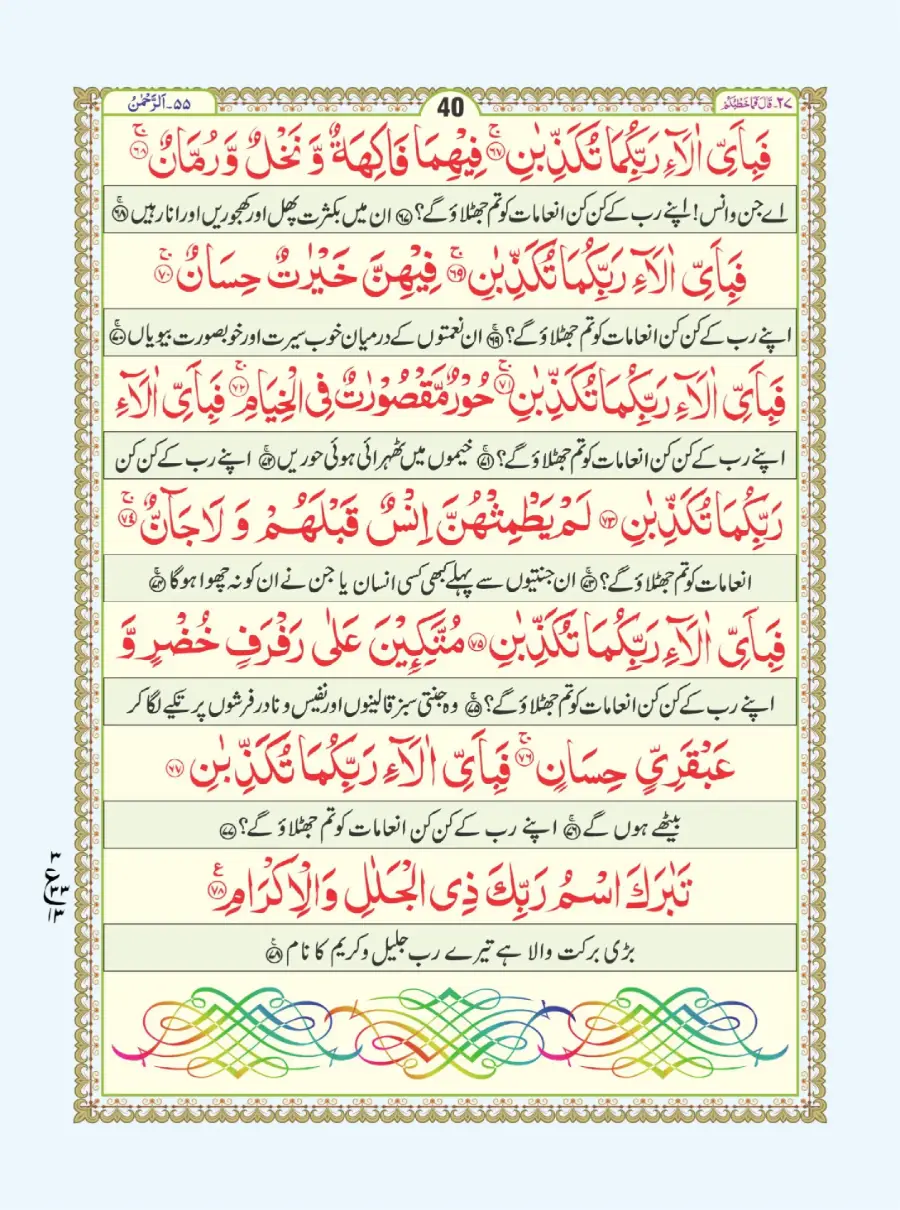 ٢٧۔ قَالَ فَمَا خَطْبُكُمْ
40
٥٥۔ اَلرَّحْمٰنُ
فَبِاَیِّ اٰلَآءِ رَبِّكُمَا تُكَذِّبٰنِ ۚ﴿۶۷﴾ فِیْهِمَا فَاكِهَةٌ وَّ نَخْلٌ وَّ رُمَّانٌ ۚ﴿۶۸﴾
اے جن وانس! اپنے رب کے کن کن انعامات کو تم جھٹلاؤ گے؟ ﴿۶۷﴾ ان میں بکثرت پھل اور کھجوریں اور انار ہیں ﴿۶۸﴾
فَبِاَیِّ اٰلَآءِ رَبِّكُمَا تُكَذِّبٰنِ ۚ﴿۶۹﴾ فِیْهِنَّ خَیْرٰتٌ حِسَانٌ ۚ﴿۷۰﴾
اپنے رب کے کن کن انعامات کو تم جھٹلاؤ گے؟ ﴿۶۹﴾ ان نعمتوں کے درمیان خوب سیرت اور خوبصورت بیویاں ﴿۷۰﴾
فَبِاَیِّ اٰلَآءِ رَبِّكُمَا تُكَذِّبٰنِ ۚ﴿۷۱﴾ حُوْرٌ مَّقْصُوْرٰتٌ فِی الْخِیَامِ ۚ﴿۷۲﴾ فَبِاَیِّ اٰلَآءِ
اپنے رب کے کن کن انعامات کو تم جھٹلاؤ گے؟ ﴿۷۱﴾ خیموں میں ٹھہرائی ہوئی حوریں ﴿۷۲﴾ اپنے رب کے کن کن
رَبِّكُمَا تُكَذِّبٰنِ ﴿۷۳﴾ لَمْ یَطْمِثْهُنَّ اِنْسٌ قَبْلَهُمْ وَ لَا جَآنٌّ ۚ﴿۷۴﴾
انعامات کو تم جھٹلاؤ گے؟ ﴿۷۳﴾ ان جنتیوں سے پہلے کبھی کسی انسان یا جن نے ان کو نہ چھوا ہوگا ﴿۷۴﴾
فَبِاَیِّ اٰلَآءِ رَبِّكُمَا تُكَذِّبٰنِ ﴿۷۵﴾ مُتَّكِـِٕیْنَ عَلٰی رَفْرَفٍ خُضْرٍ وَّ
اپنے رب کے کن کن انعامات کو تم جھٹلاؤ گے؟ ﴿۷۵﴾ وہ جنتی سبز قالینوں اور نفیس و نادر فرشوں پر تکیے لگا کر
عَبْقَرِیٍّ حِسَانٍ ۚ﴿۷۶﴾ فَبِاَیِّ اٰلَآءِ رَبِّكُمَا تُكَذِّبٰنِ ﴿۷۷﴾
بیٹھے ہوں گے ﴿۷۶﴾ اپنے رب کے کن کن انعامات کو تم جھٹلاؤ گے؟ ﴿۷۷﴾
تَبٰرَكَ اسْمُ رَبِّكَ ذِی الْجَلٰلِ وَالْاِكْرَامِ ﴿۷۸﴾ ع
بڑی برکت والا ہے تیرے رب جلیل و کریم کا نام ﴿۷۸﴾